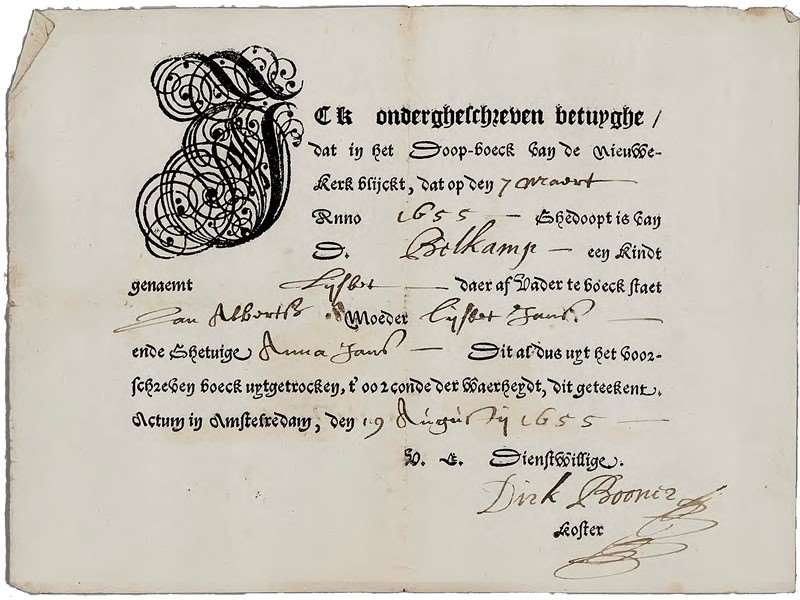 ICK ondergheschreven betuyghe /
dat in het Doop-boeck van de Nieuwe-
Kerk blijckt, dat op den 7 Maert
Anno 1655 Ghedoopt is van
D. Belkamp een Kindt
genaemt Lysbet daer af Vader te boeck staet
Jan Alberts Moeder Lysbet Jans
ende Ghetuige Anna Jans Dit aldus uyt het voor-
schreven boeck uytgetrocken, t' oorconde der Waerheydt, dit geteekent.
Actum in Amstelredam, den 19 Augustij 1655
V. E. Dienstwillige.
Dirk
Koster